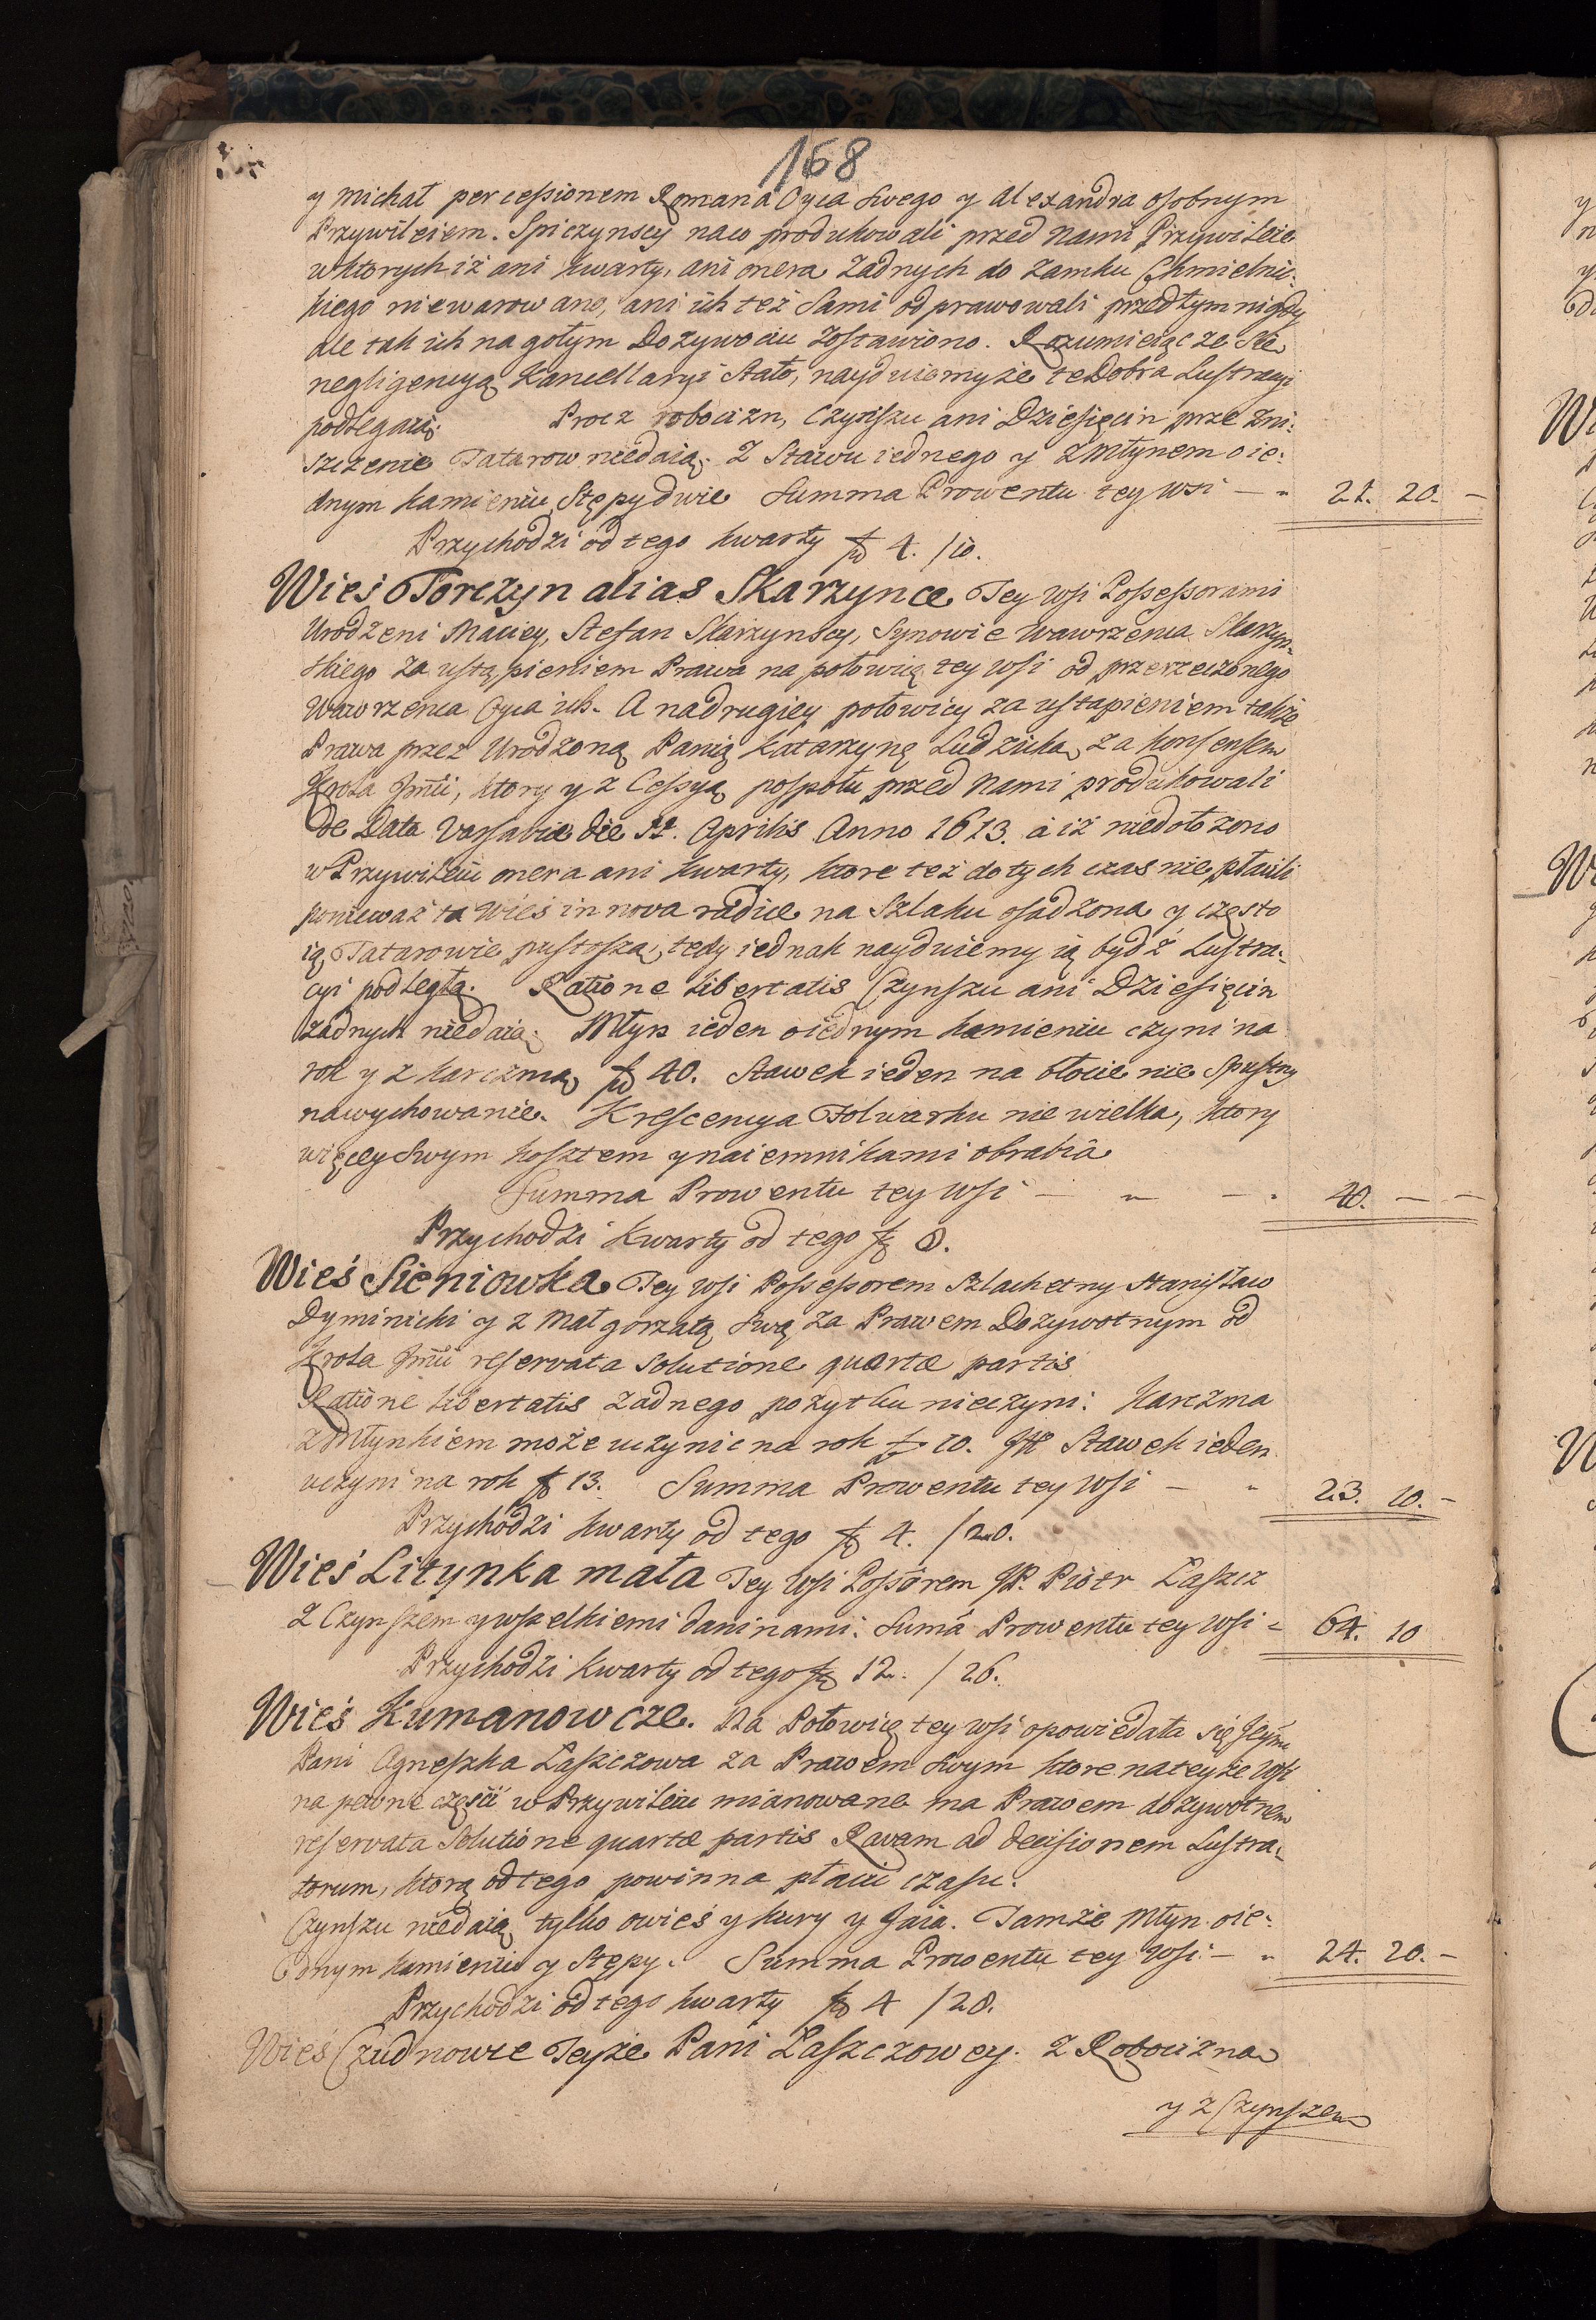 168
y Michał per cessionem Romana Oyca swego y Alexandra osobnym
Przywileiem. Spiczynscy naco produkowali przed Nami Przywileie
wktorych iż ani kwarty, ani onera żadnych do zamku Chmielnic:
kiego niewarowano, ani ich też sami odprawowali przedtym nigdy
ale tak ich nagołym Dożywociu zostawiono. Rozumieiąc że się
negligencyą Kancellaryi stało, nayduiemy że te Dobra Lustracyi
podlegaią. Procz robocizn, Czynszu ani Dziesięcin prze zni:
szczenie Tatarow niedaią. Z Stawu iednego y zMłynem o ie:
dnym kamieniu, Stępy dwie Summa Prowentu tey Wsi — " 21. 20. —
Przychodzi od tego kwarty fl 4. /10.
Wieś Torczyn alias Skarzynce Tey Wsi Possessorami
Urodzeni Maciey, Stefan Skarzynscy, Synowie Wawrzenca Skarzyn:
skiego za ustąpieniem Prawa na połowicę tey Wsi od przerzeczonego
Wawrzenca Oyca ich. A nadrugiey połowicy za ustąpieniem także
Prawa przez Urodzoną Panią Katarzynę Ludzicką, za konsensem
Krola Jmci, ktory y z Cessyą pospołu przed Nami produkowali
de Data Varsaviæ die Aprilis Anno 1613. à iż niedołożono
w Przywileiu onera ani kwarty, ktore też do tych czas nie płacili
ponieważ ta Wieś in nova radice na Szlaku osadzona y często
ią Tatarowie pustoszą, tedy iednak nayduiemy ią bydź Lustra:
cyi podległą. Ratione libertatis Czynszu ani Dziesięcin
żadnych niedaią. Młyn ieden oiednym kamieniu czyni na
rok y z karczmą fl 40. Stawek ieden na błocie nie spustny
nawychowanie. Krescencya Folwarku nie wielka, ktory
więcey swym kosztem y naiemnikami obrabia
Summa Prowentu tey Wsi — " — " 40. — —
Przychodzi Kwarty od tego fl 8.
Wieś Sieniowka Tey Wsi Possessorem Szlachetny Stanisław
Dyminicki y z Małgorzatą swą za Prawem Dożywotnym od
Krola Jmci reservata solutione quartæ partis
Ratione libertatis żadnego pożytku nieczyni: Karczma
z Młynkiem może uczynic na rok fl 10. Stawek ieden
uczyni na rok fl 13. Summa Prowentu tey Wsi — " 23. 10. —
Przychodzi kwarty od tego fl 4. /20.
Wieś Litynka mała Tey Wsi Possorem JP. Piotr Łaszcz
z Czynszem y wszelkiemi daninami. Sumâ Prowentu tey Wsi = 64. 10
Przychodzi Kwarty od tego fl 12. / 26.
Wieś Kumanowcze. Na Połowicę tey wsi opowiedała się Jeym
Pani Agneszka Łaszczowa za Prawem swym ktore nateyże Wsi
na pewne części w Przywileiu mianowane ma Prawem dożywotnem
reservata Solutione quartæ partis Ravam ad decisionem Lustra:
torum, ktorą odtego powinna płacic czasu.
Czynszu niedaią tylko owieś y kury y Jaia. Tamże Młyn oie:
dnym kamieniu y Stępy. Summa Prowentu tey Wsi — " 24. 20. —
Przychodzi od tego kwarty fl 4 /28.
Wieś Czudnowce Teyże Pani Łaszczowey. z Robocizną
y z Czynszem